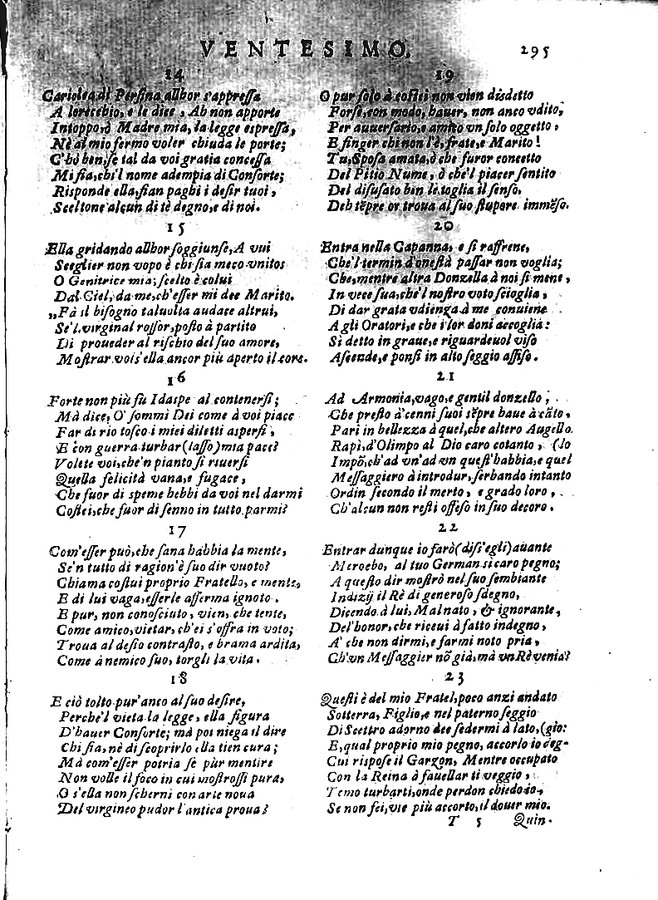 VENTESIMO. 295
14
Cariclea di Persina allhor s'appressa
A l'orecchio, e le dice, Ah non apporte
Intoppo, ò Madre mia, la legge espressa,
Nè al mio fermo voler chiuda le porte;
C'hò ben, se tal da voi gratia concessa
Mi fia, chi'l nome adempia di Consorte;
Risponde ella, fian paghi i desir tuoi,
Sceltone alcun di tè degno, e di noi.
15
Ella gridando allhor soggiunse, A vui
Sceglier non vopo è chi sia meco unitos
O Genitrice mia; scelto è colui
Dal Ciel, da me, ch'esser mi dee Marito.
„Fà il bisogno talvolta audace altrui,
Se'l virginal rossor, posto à partito
Di proueder al rischio del suo amore,
Mostrar voi s'ella ancor più aperto il core.
16
Forte non più fù Idaspe al contenersi;
Mà dice, O' sommi Dei come à voi piace
Far di rio tosco i miei diletti aspersi,
E con guerra turbar (lasso) mia pace?
Volete voi, che'n pianto si riuersi
Quella felicità vana, e fugace,
Che fuor di speme hebbi da voi nel darmi
Costei, che fuor di senno in tutto parmi?
17
Com'esser può, che sana habbia la mente,
Se'n tutto di ragion'è suo dir vuoto?
Chiama costui proprio Fratello, e mente,
E di lui vaga, esserle afferma ignoto.
E pur, non conosciuto, vien, che tente,
Come amico, vietar, ch'ei s'offra in voto;
Troua al desio contrasto, e brama ardita,
Come à nemico suo, torgli la vita.
18
E ciò tolto pur'anco al suo desire,
Perche'l vieta la legge, ella figura
D'hauer Consorte; mà poi niega il dire
Chi sia, nè di scoprirlo ella tien cura;
Mà com'esser potria se pur mentire
Non volle il foco in cui mostrossi pura,
O s'ella non schernì con arte noua
Del virgineo pudor l'antica proua?
19
O pur solo à costei non vien disdetto
Forse, con modo, hauer, non anco vdito,
Per auuersario, e amico vn solo oggetto,
E finger chi non l'è, frate, e Marito!
Tu, Sposa amata, ò che furor concetto
Del Pitio Nume, ò che'l piacer sentito
Del disusato ben le toglia il senso.
Deh tẽpre or troua al suo stupore immẽso.
20
Entra nella Capanna, e si raffrene,
Che'l termin d'onestà passar non voglia;
Che, mentre altra Donzella à noi si mene,
In vece sua, che'l nostro voto scioglia,
Di dar grata vdienza à me conuiene
A gli Oratori, e che i lor doni accoglia:
Sì detto in graue, e riguardeuol viso
Ascende, e ponsi in alto seggio assiso.
21
Ad Armonia, vago, e gentil donzello;
Che presto à cenni suoi sẽpre haue à cãto,
Pari in bellezza à quel, che altero Augello
Rapì, d'Olimpo al Dio caro cotanto, (lo
Impõ, ch'ad vn'ad vn quest'habbia, e quel
Messaggiero à introdur, serbando intanto
Ordin secondo il merto, e grado loro,
Ch'alcun non resti offeso in suo decoro.
22
Entrar dunque io farò (disi'egli) auante
Meroebo, al tuo German si caro pegno;
A questo dir mostrò nel suo sembiante
Indizij il Rè di generoso sdegno,
Dicendo à lui, Malnato, & ignorante,
Del'honor, che riceui à fatto indegno,
A' che non dirmi, e farmi noto pria,
Ch'vn Messaggier nõ già, mà vn Rè venia?
23
Questi è del mio Fratel, poco anzi andato
Sotterra, Figlio, e nel paterno seggio
Di Scettro adorno dee sedermi à lato, (gio:
E, qual proprio mio pegno, accorlo io deg-
Cui rispose il Garzon, Mentre occupato
Con la Reina à fauellar ti veggio,
Temo turbarti, onde perdon chiedoio,
Se non fei, vie più accorto, il douer mio.
T 5 Quin-